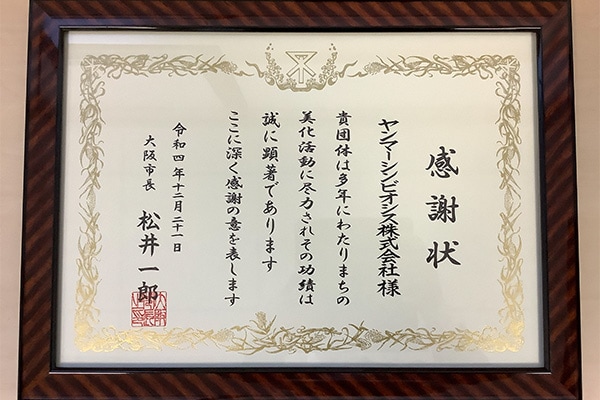 感謝状
ヤンマーシンビオシス株式会社様
貴団体は多年にわたりまちの
美化活動に尽力されその功績は
誠に顕著であります
ここに深く感謝の意を表します
令和四年十二月二十一日
大阪市長 松井一郎